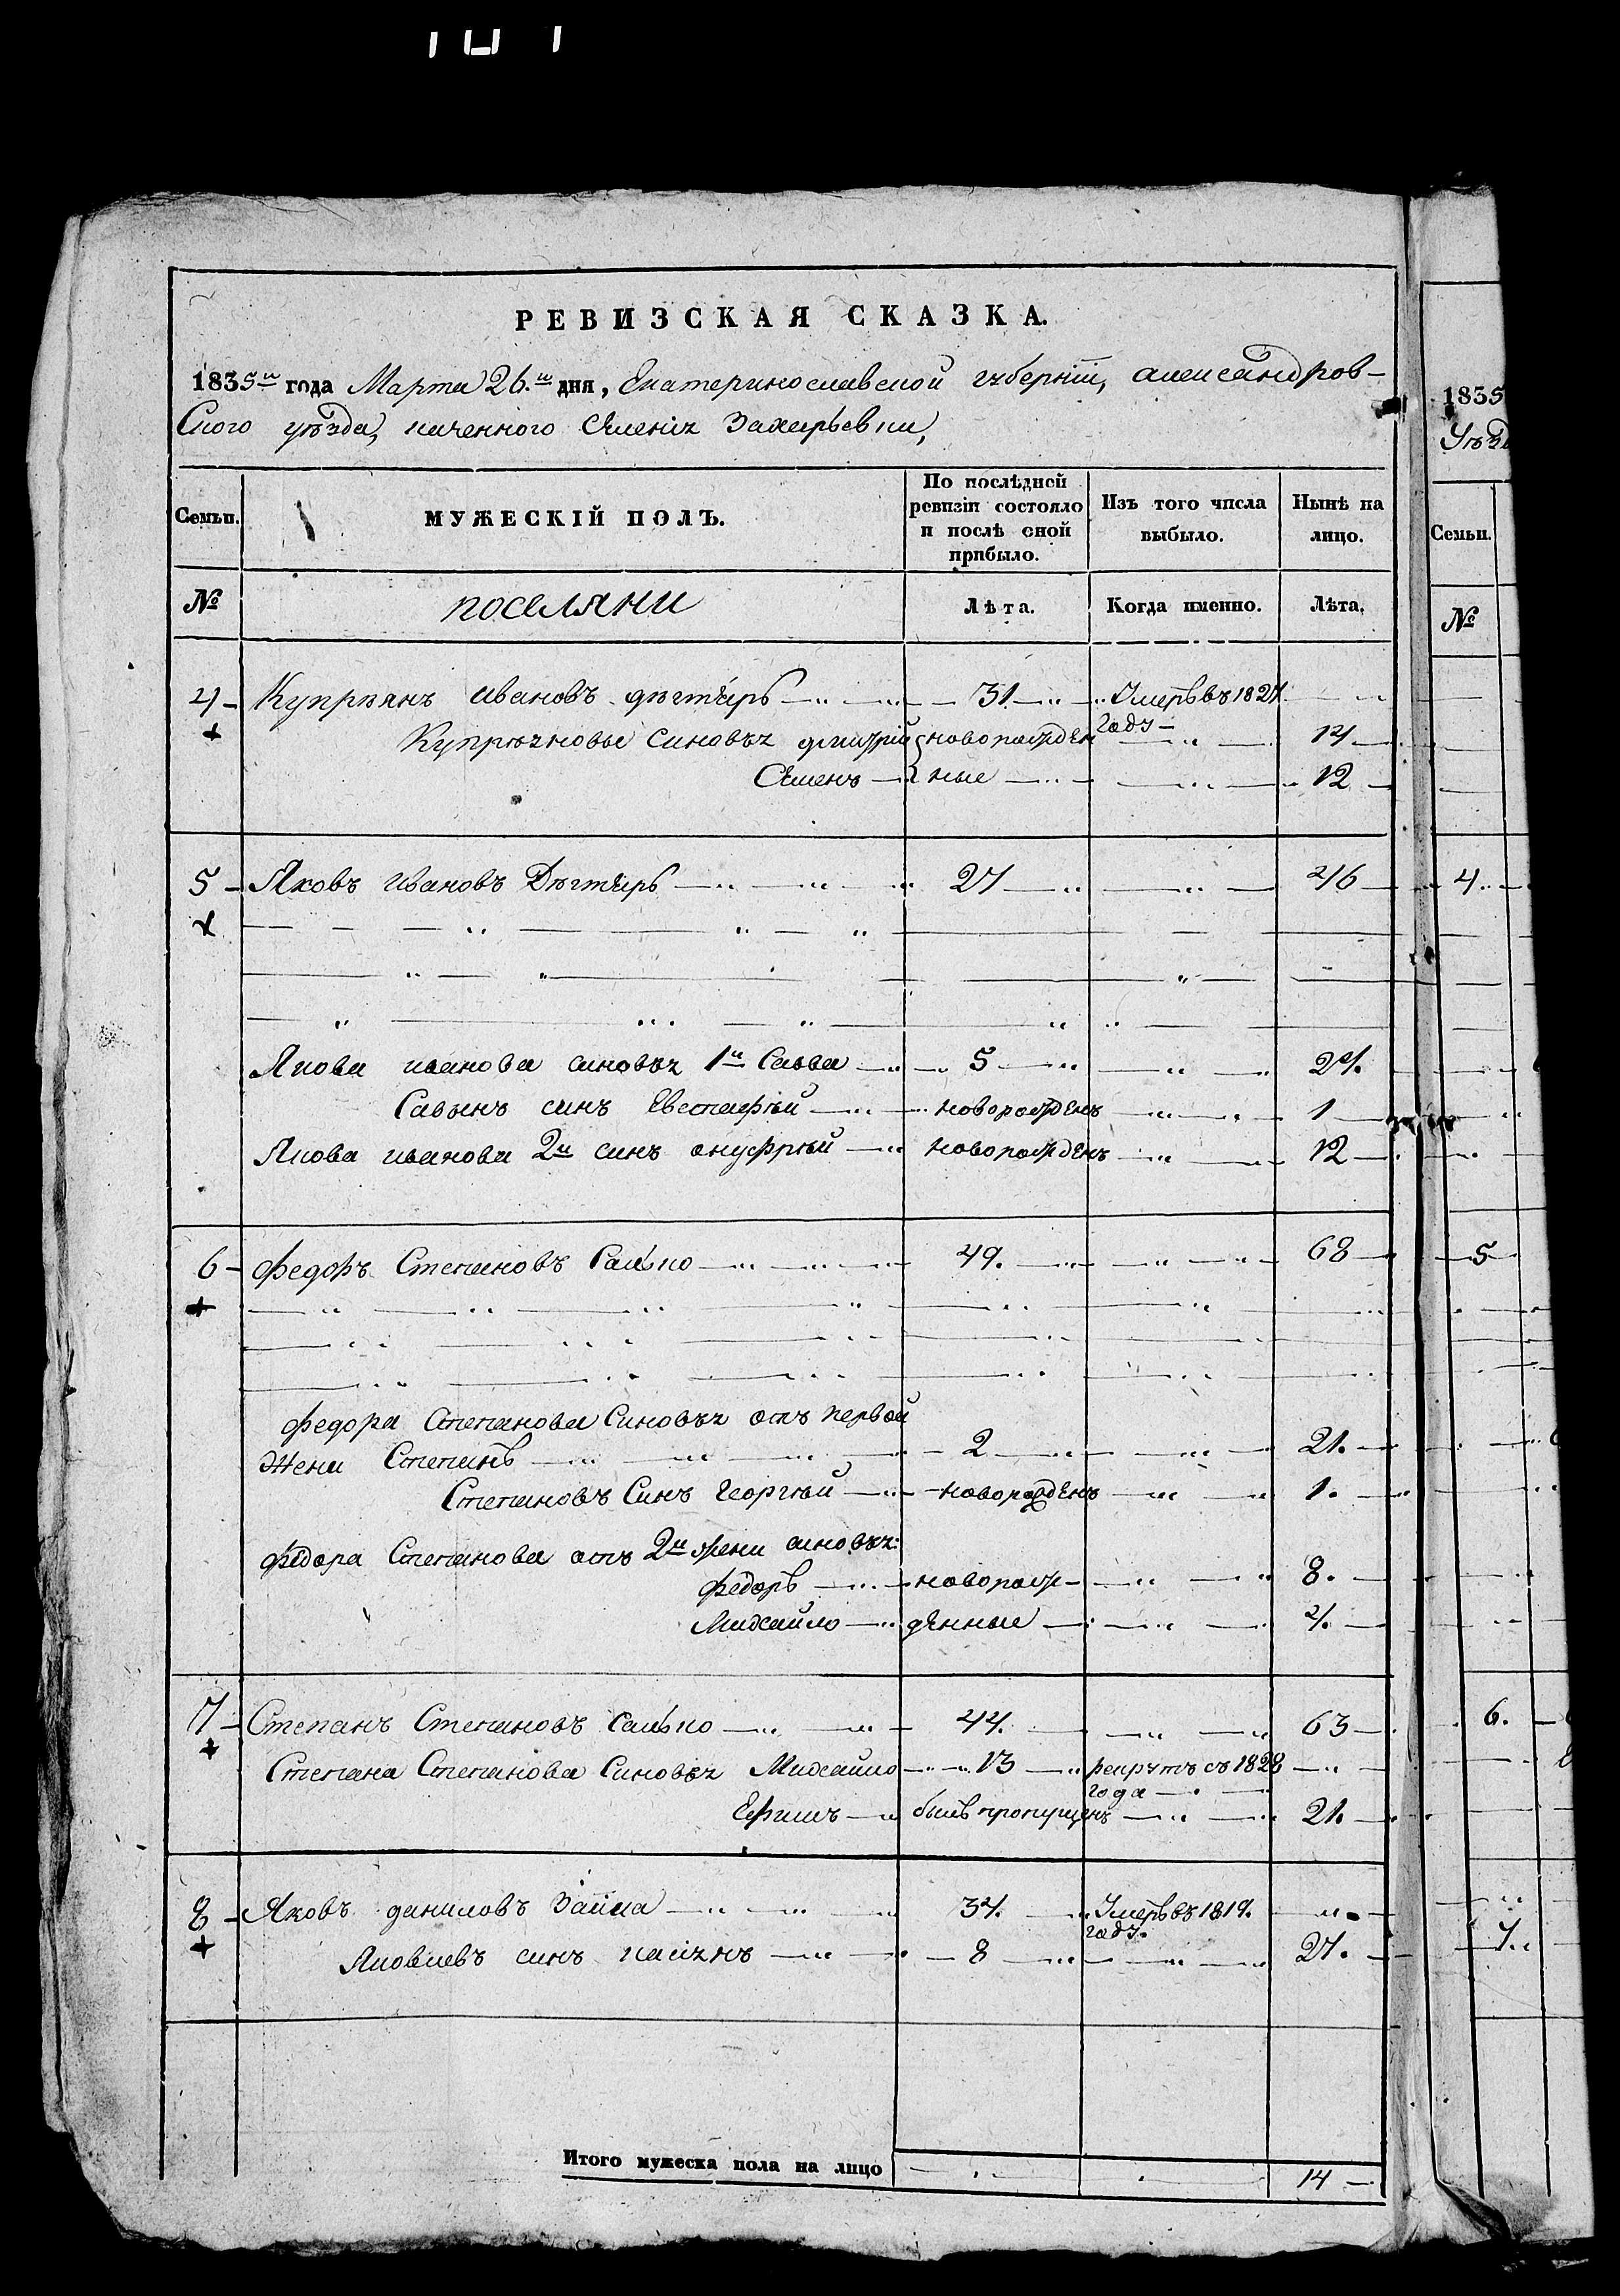 РЕВИЗСКАЯ СКАЗКА.
1835го года Марта 26.го дня, Екатеринославской губерніи, александров-
ского уѣзда, казенного селенія Захарьевки,
Семьи. МУЖЕСКІЙ ПОЛЪ. По послѣдней ревизіи состояло и послѣ оной прибыло. Изъ того числа выбыло. Нынѣ на лицо.
№ поселяни Лѣта. Когда именно. Лѣта.
4 Купріянъ ивановъ дѣгтярь 31 Умеръ въ 1827
году
Купріяновы синовья дмитрій новорожден 14
Семенъ ные 12
5 Яковъ ивановъ Дѣгтярь 27 46
Якова иванова синовья 1й Савва 5 24.
Савынъ синъ Евстафій новорожденъ 1
Якова иванова 2й синъ онуфрій новорожденъ 12
6 федоръ Степановъ Салько 49. 68
федора Степанова Синовья отъ первой
жени Степанъ 2 21.
Степановъ Синъ Георгій новорожденъ 1.
федора Степанова отъ 2й жени синовья:
федоръ новорож- 8.
Михайло денные 4.
7 Степанъ Степановъ Салько 44. 63
Степана Степанова Синовья Михайло 13 рекрутъ съ 1828
года
Ефимъ былъ пропущенъ 21.
8 Яковъ даниловъ Заика 34. Умеръ въ 1819.
году.
Яковлевъ синъ касіянъ 8 27.
Итого мужеска пола на лицо 14
1835
Уѣзд
Семьи.
№
4.
5
6.
7.